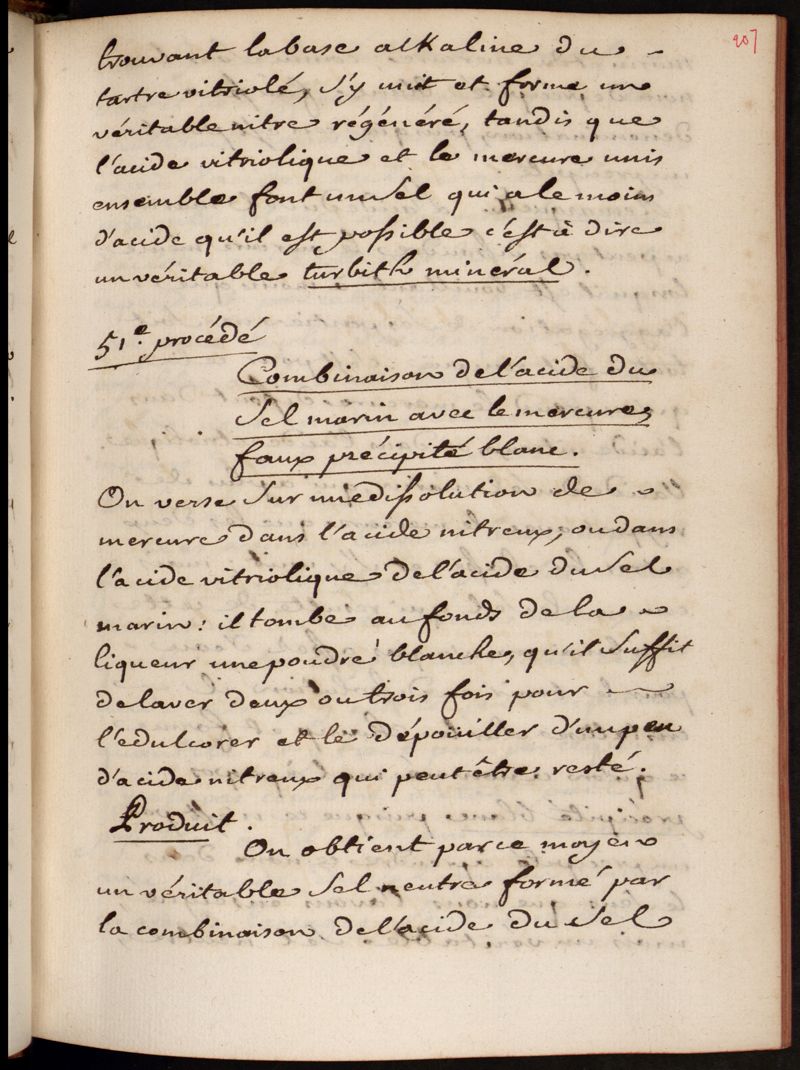 207
trouvant la base alkaline du
tartre vitriolé, s'y unit et forme un
véritable nitre régénéré, tandis que
l'acide vitriolique et le mercure unis
ensemble font un sel qui a le moins
d'acide qu'il est possible c'est à dire
un véritable turbith minéral.
51e. procédé
Combinaison de l'acide du
Sel marin avec le mercure,
faux précipité blanc.
On verse sur une dissolution de
mercure dans l'acide nitreux, ou dans
l'acide vitriolique de l'acide du sel
marin: il tombe au fonds de la
liqueur une poudre blanche, qu'il suffit
de laver deux ou trois fois pour
l'edulcorer et le dépouiller d'un peu
d'acide nitreux qui peut être resté.
Produit.
On obtient par ce moyen
un véritable sel neutre formé par
la combinaison de l'acide du sel